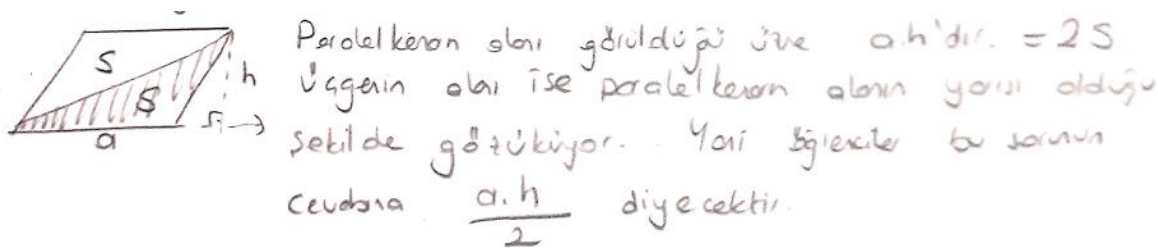 S
S
h
a
Paralelkenarın alanı görüldüğü üzere a.h'dir. = 2S
Üçgenin alanı ise paralelkenarın alanın yarısı olduğu
şekilde gözüküyor. Yani öğrenciler bu sorunun
cevabına a.h
2 diyecektir.